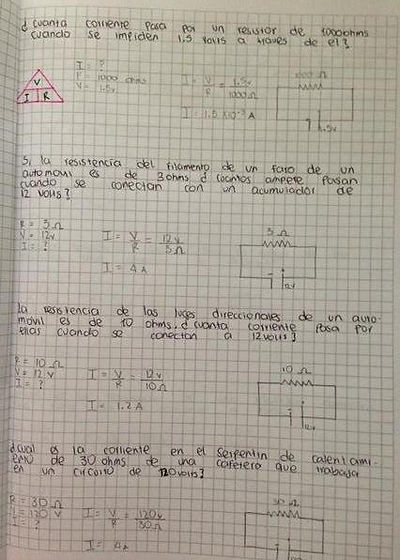 ¿ cuanta corriente pasa por un resistor de 1000ohms
cuando se impiden 1.5 volts a traves de el?
V
I R
I = ?
R = 1000 ohms
V = 1.5v
I = V/R = 1.5v/1000Ω
I = 1.5 x10⁻³ A
1000 Ω
1.5v
Si la resistencia del filamento de un faro de un
automovil es de 3ohms ¿ cuantos ampere pasan
cuando se conectan con un acumulador de
12 volts?
R = 3Ω
V = 12v
I = ?
I = V/R = 12v/3Ω
I = 4 A
3 Ω
12v
la resistencia de las luces direccionales de un auto-
movil es de 10 ohms. ¿ cuanta corriente pasa por
ellas cuando se conectan a 12volts?
R = 10 Ω
V = 12 V
I = ?
I = V/R = 12v/10Ω
I = 1.2 A
10 Ω
12v
¿cual es la corriente en el serpentin de calentami-
ento de 30 ohms de una cafetera que trabaja
en un circuito de 120volts?
R = 30Ω
V = 120 V
I = ?
I = V/R = 120v/30Ω
I = 4A
30 Ω